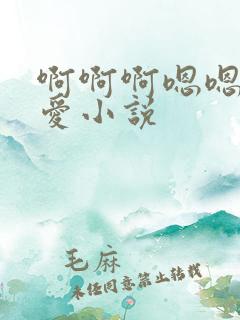 啊啊啊嗯嗯
爱小说
毛麻
未经同意禁止转载